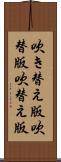 吹き替え版吹
替版吹替え版